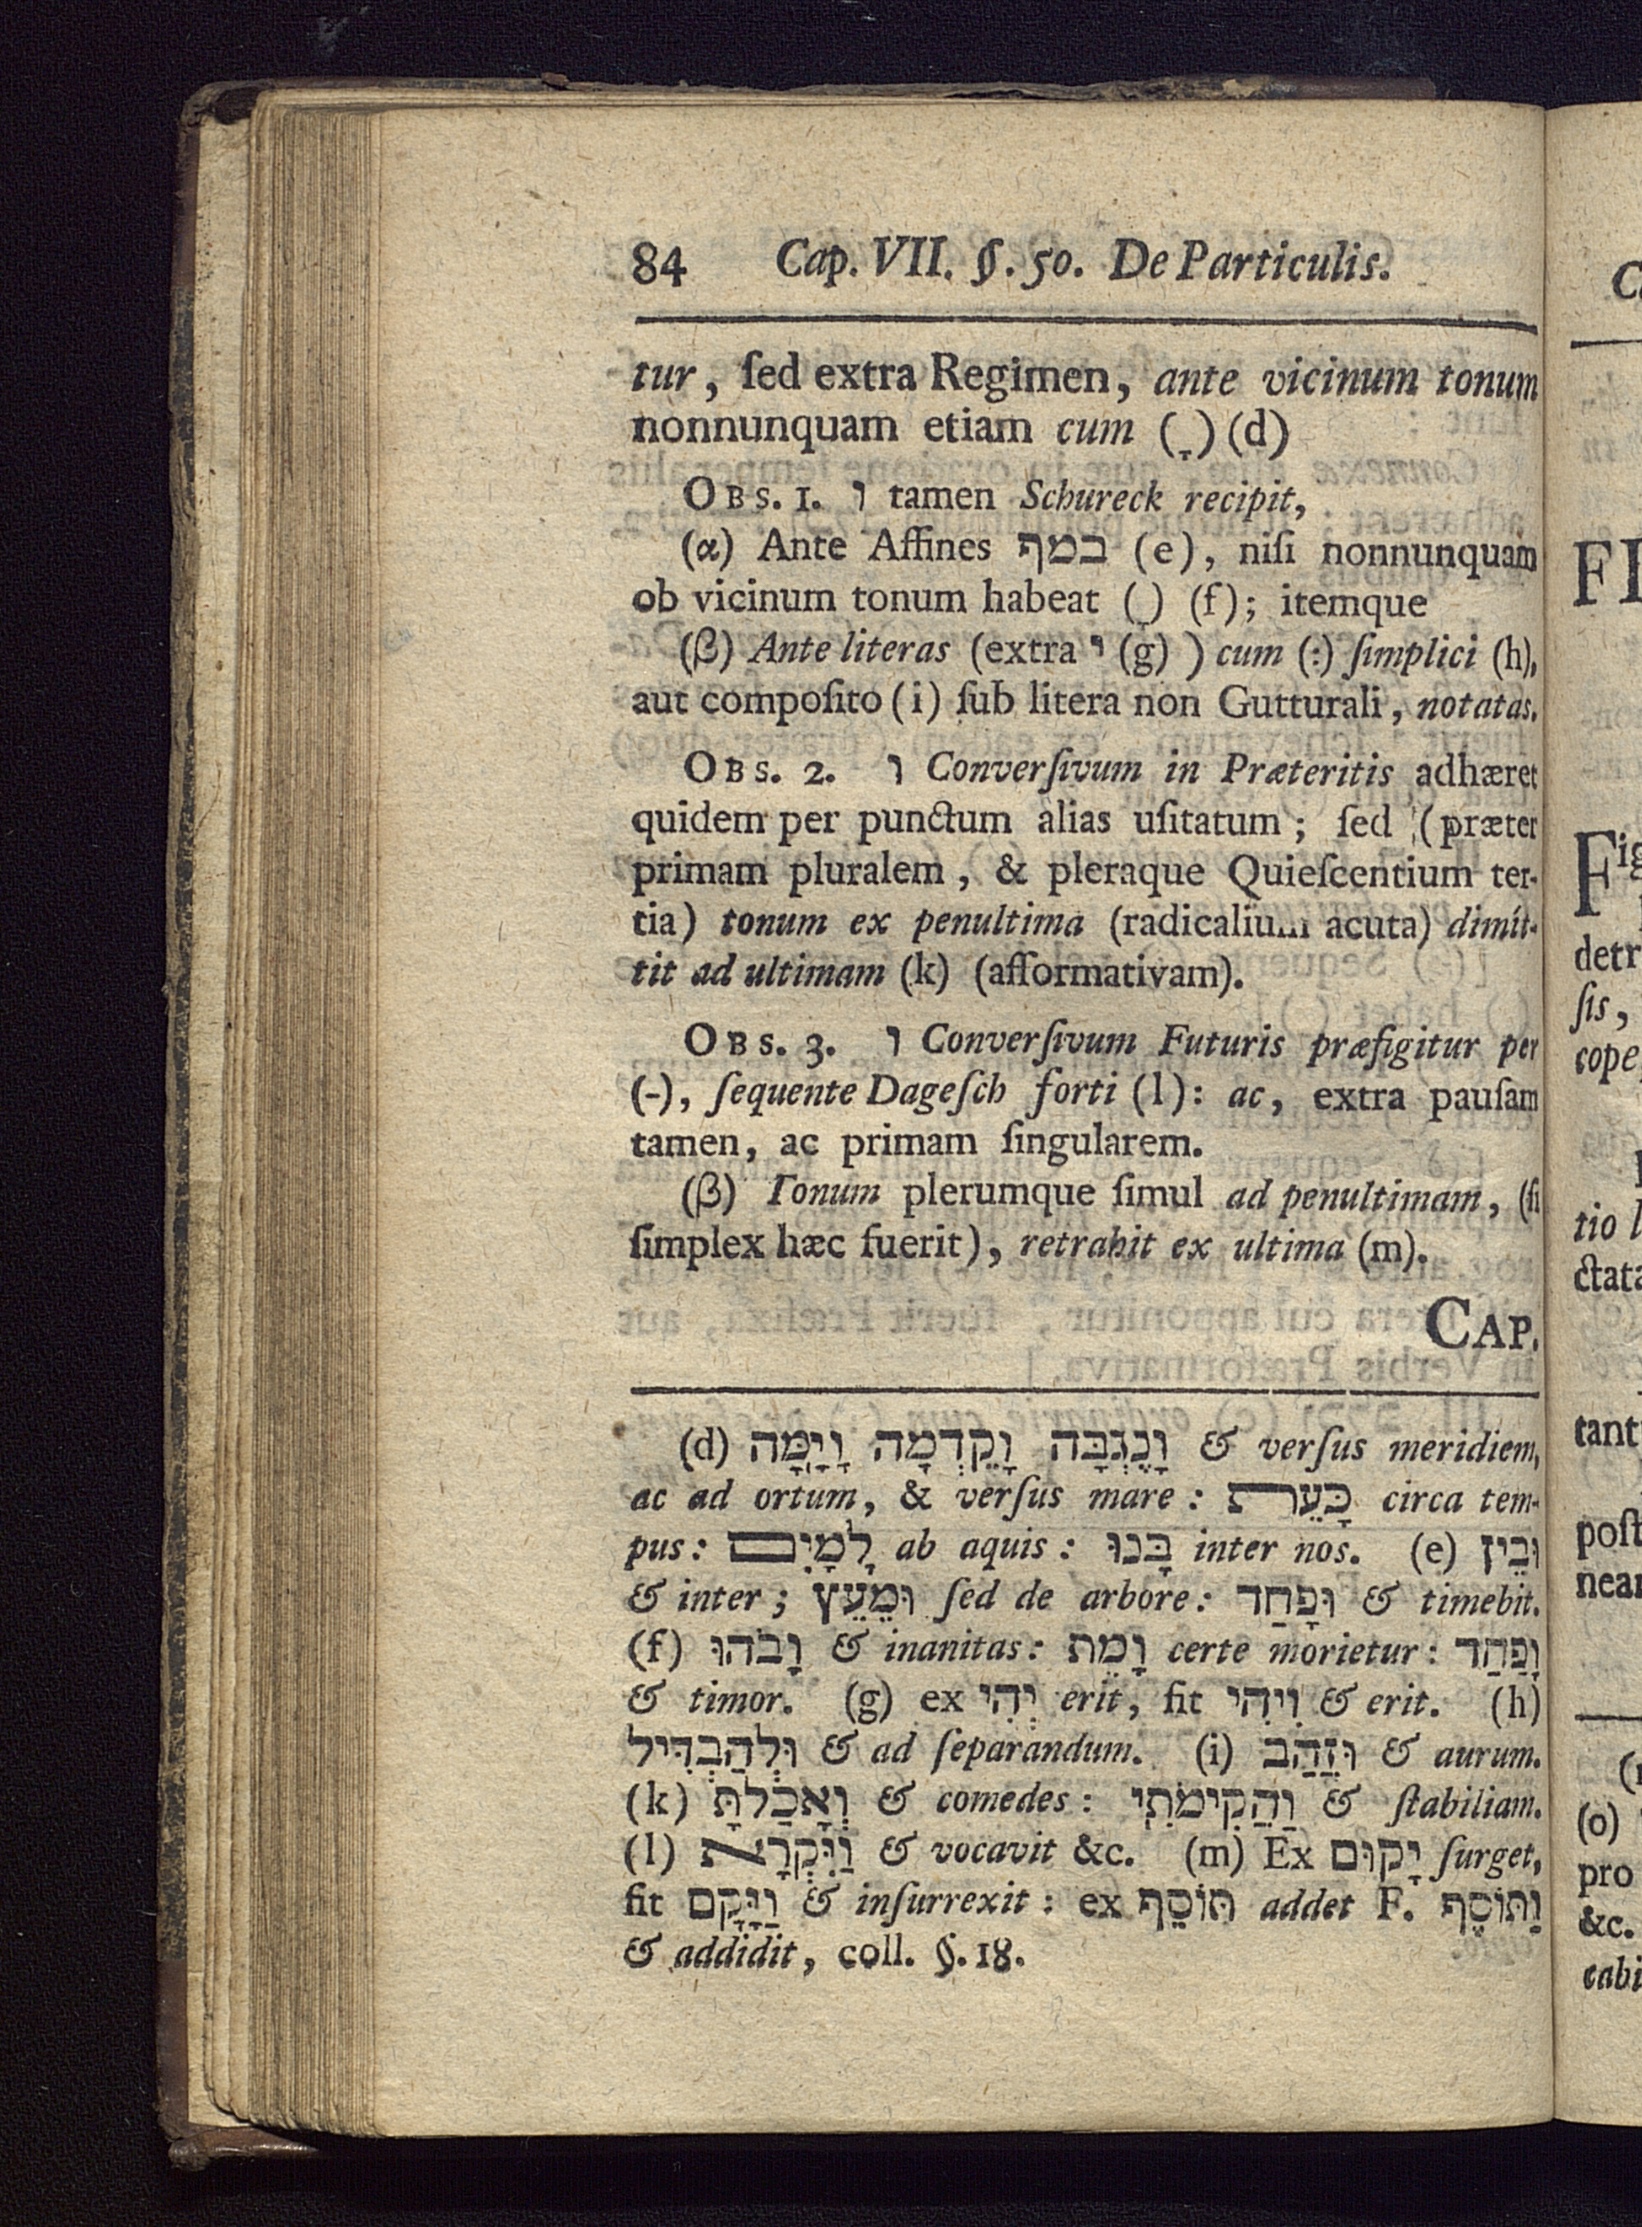 84 Cap. VII. §. 50. De Particulis.
tur, ſed extra Regimen, ante vicinum tonum
nonnunquam etiam cum (ָ) (d)
OBS. 1. ו tamen Schureck recipit,
(α) Ante Affines במף (e), niſi nonnunquam
ob vicinum tonum habeat (ָ) (f); itemque
(β) Ante literas (extra י (g) ) cum (:) ſimplici (h),
aut compoſito (i) ſub litera non Gutturali, notatas.
OBS. 2. ו Converſivum in Præteritis adhæret
quidem per punctum alias uſitatum; ſed (præter
primam pluralem, & pleraque Quieſcentium ter-
tia) tonum ex penultima (radicalium acuta) dimit-
tit ad ultimam (k) (afformativam).
OBS. 3. ו Converſivum Futuris præfigitur per
(-), ſequente Dageſch forti (l): ac, extra pauſam
tamen, ac primam ſingularem.
(β) Tonum plerumque ſimul ad penultimam, (ſi
ſimplex hæc fuerit), retrahit ex ultima (m).
CAP.
(d) וָנֶגְבָּה וָקֵדְמָה וָיָמָּה & verſus meridiem,
ac ad ortum, & verſus mare: כָּעֵת circa tem-
pus: לָמָיִם ab aquis: בָּנוּ inter nos. (e) וּבֵין
& inter; וּמֵעֵץ ſed de arbore: וּפָחַד & timebit.
(f) וָבֹהוּ & inanitas: וָמֵת certe morietur: וָפַחַד
& timor. (g) ex יְהִי erit, fit וִיהִי & erit. (h)
וּלְהַבְדִּיל & ad ſeparandum. (i) וּזֲהַב & aurum.
(k) וְאָכַלְתָּ & comedes: וַהֲקִימֹתִי & ſtabiliam.
(l) וַיִּקְרָא & vocavit &c. (m) Ex יָקוּם ſurget,
fit וַיָּקָם & inſurrexit: ex תּוֹסֵף addet F. וַתּוֹסֶף
& addidit, coll. §. 18.